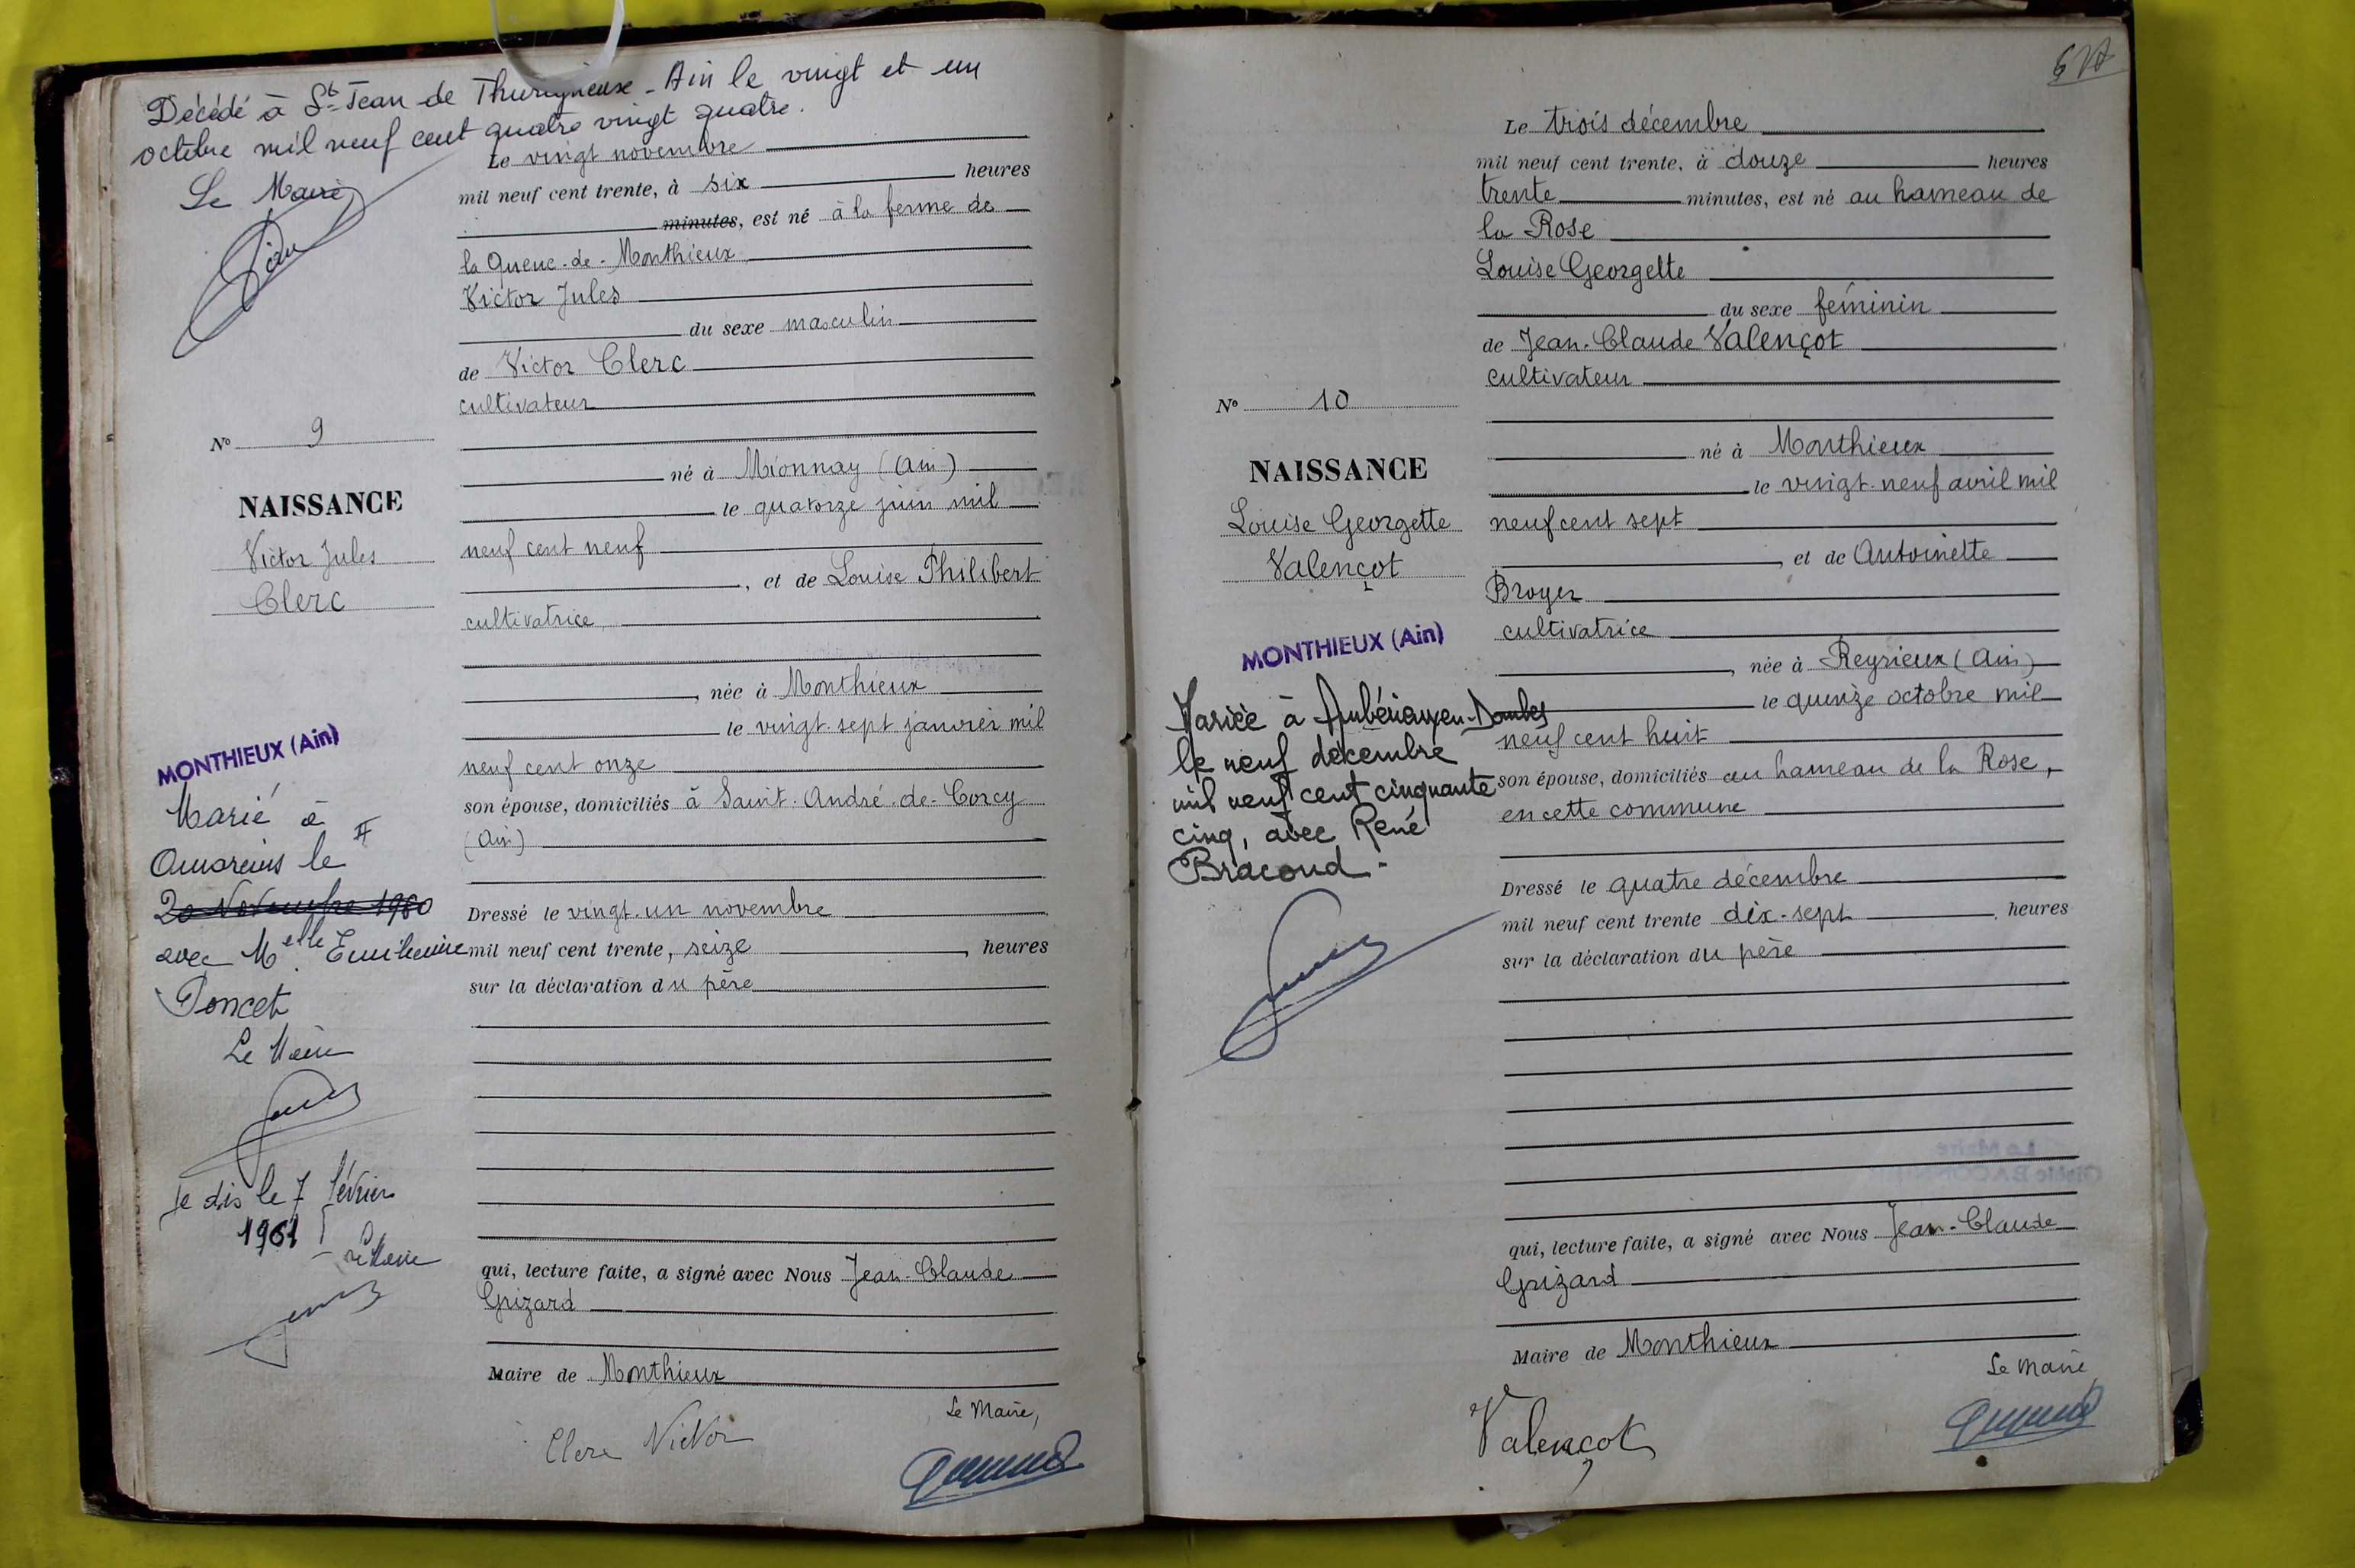 Décédé à St Jean de Thurigneux - Ain le vingt et un
octobre mil neuf cent quatre vingt quatre.
Le Maire
Le vingt novembre
mil neuf cent trente, à six heures
minutes, est né à la ferme de
la Queue-de-Monthieux
Victor Jules
du sexe masculin
de Victor Clerc
cultivateur
né à Mionnay (Ain)
le quatorze juin mil
neuf cent neuf
, et de Louise Philibert
cultivatrice
, née à Monthieux
le vingt-sept janvier mil
neuf cent onze
son épouse, domiciliés à Saint-André-de-Corcy
(Ain)
Dressé le vingt-un novembre
mil neuf cent trente, seize , heures
sur la déclaration du père
qui, lecture faite, a signé avec Nous Jean-Claude
Grizard
Maire de Monthieux
Le Maire,
Clerc Victor
N° 9
NAISSANCE
Victor Jules
Clerc
MONTHIEUX (Ain)
Marié à
Amareins le
20 Novembre 1960
avec Melle Emilienne
Poncet
Le Maire
Je dis le 7 février
1961
Le Maire
Le trois décembre
mil neuf cent trente, à douze heures
trente minutes, est né au hameau de
la Rose
Louise Georgette
du sexe féminin
de Jean-Claude Valençot
cultivateur
né à Monthieux
le vingt-neuf avril mil
neuf cent sept
, et de Antoinette
Broyer
cultivatrice
, née à Reyrieux (Ain)
le quinze octobre mil
neuf cent huit
son épouse, domiciliés au hameau de la Rose,
en cette commune
Dressé le quatre décembre
mil neuf cent trente dix-sept , heures
sur la déclaration du père
qui, lecture faite, a signé avec Nous Jean-Claude
Grizard
Maire de Monthieux
Le Maire
Valençot
N° 10
NAISSANCE
Louise Georgette
Valençot
MONTHIEUX (Ain)
Mariée à Ambérieux-en-Dombes
le neuf décembre
mil neuf cent cinquante
cinq, avec René
Bracoud -